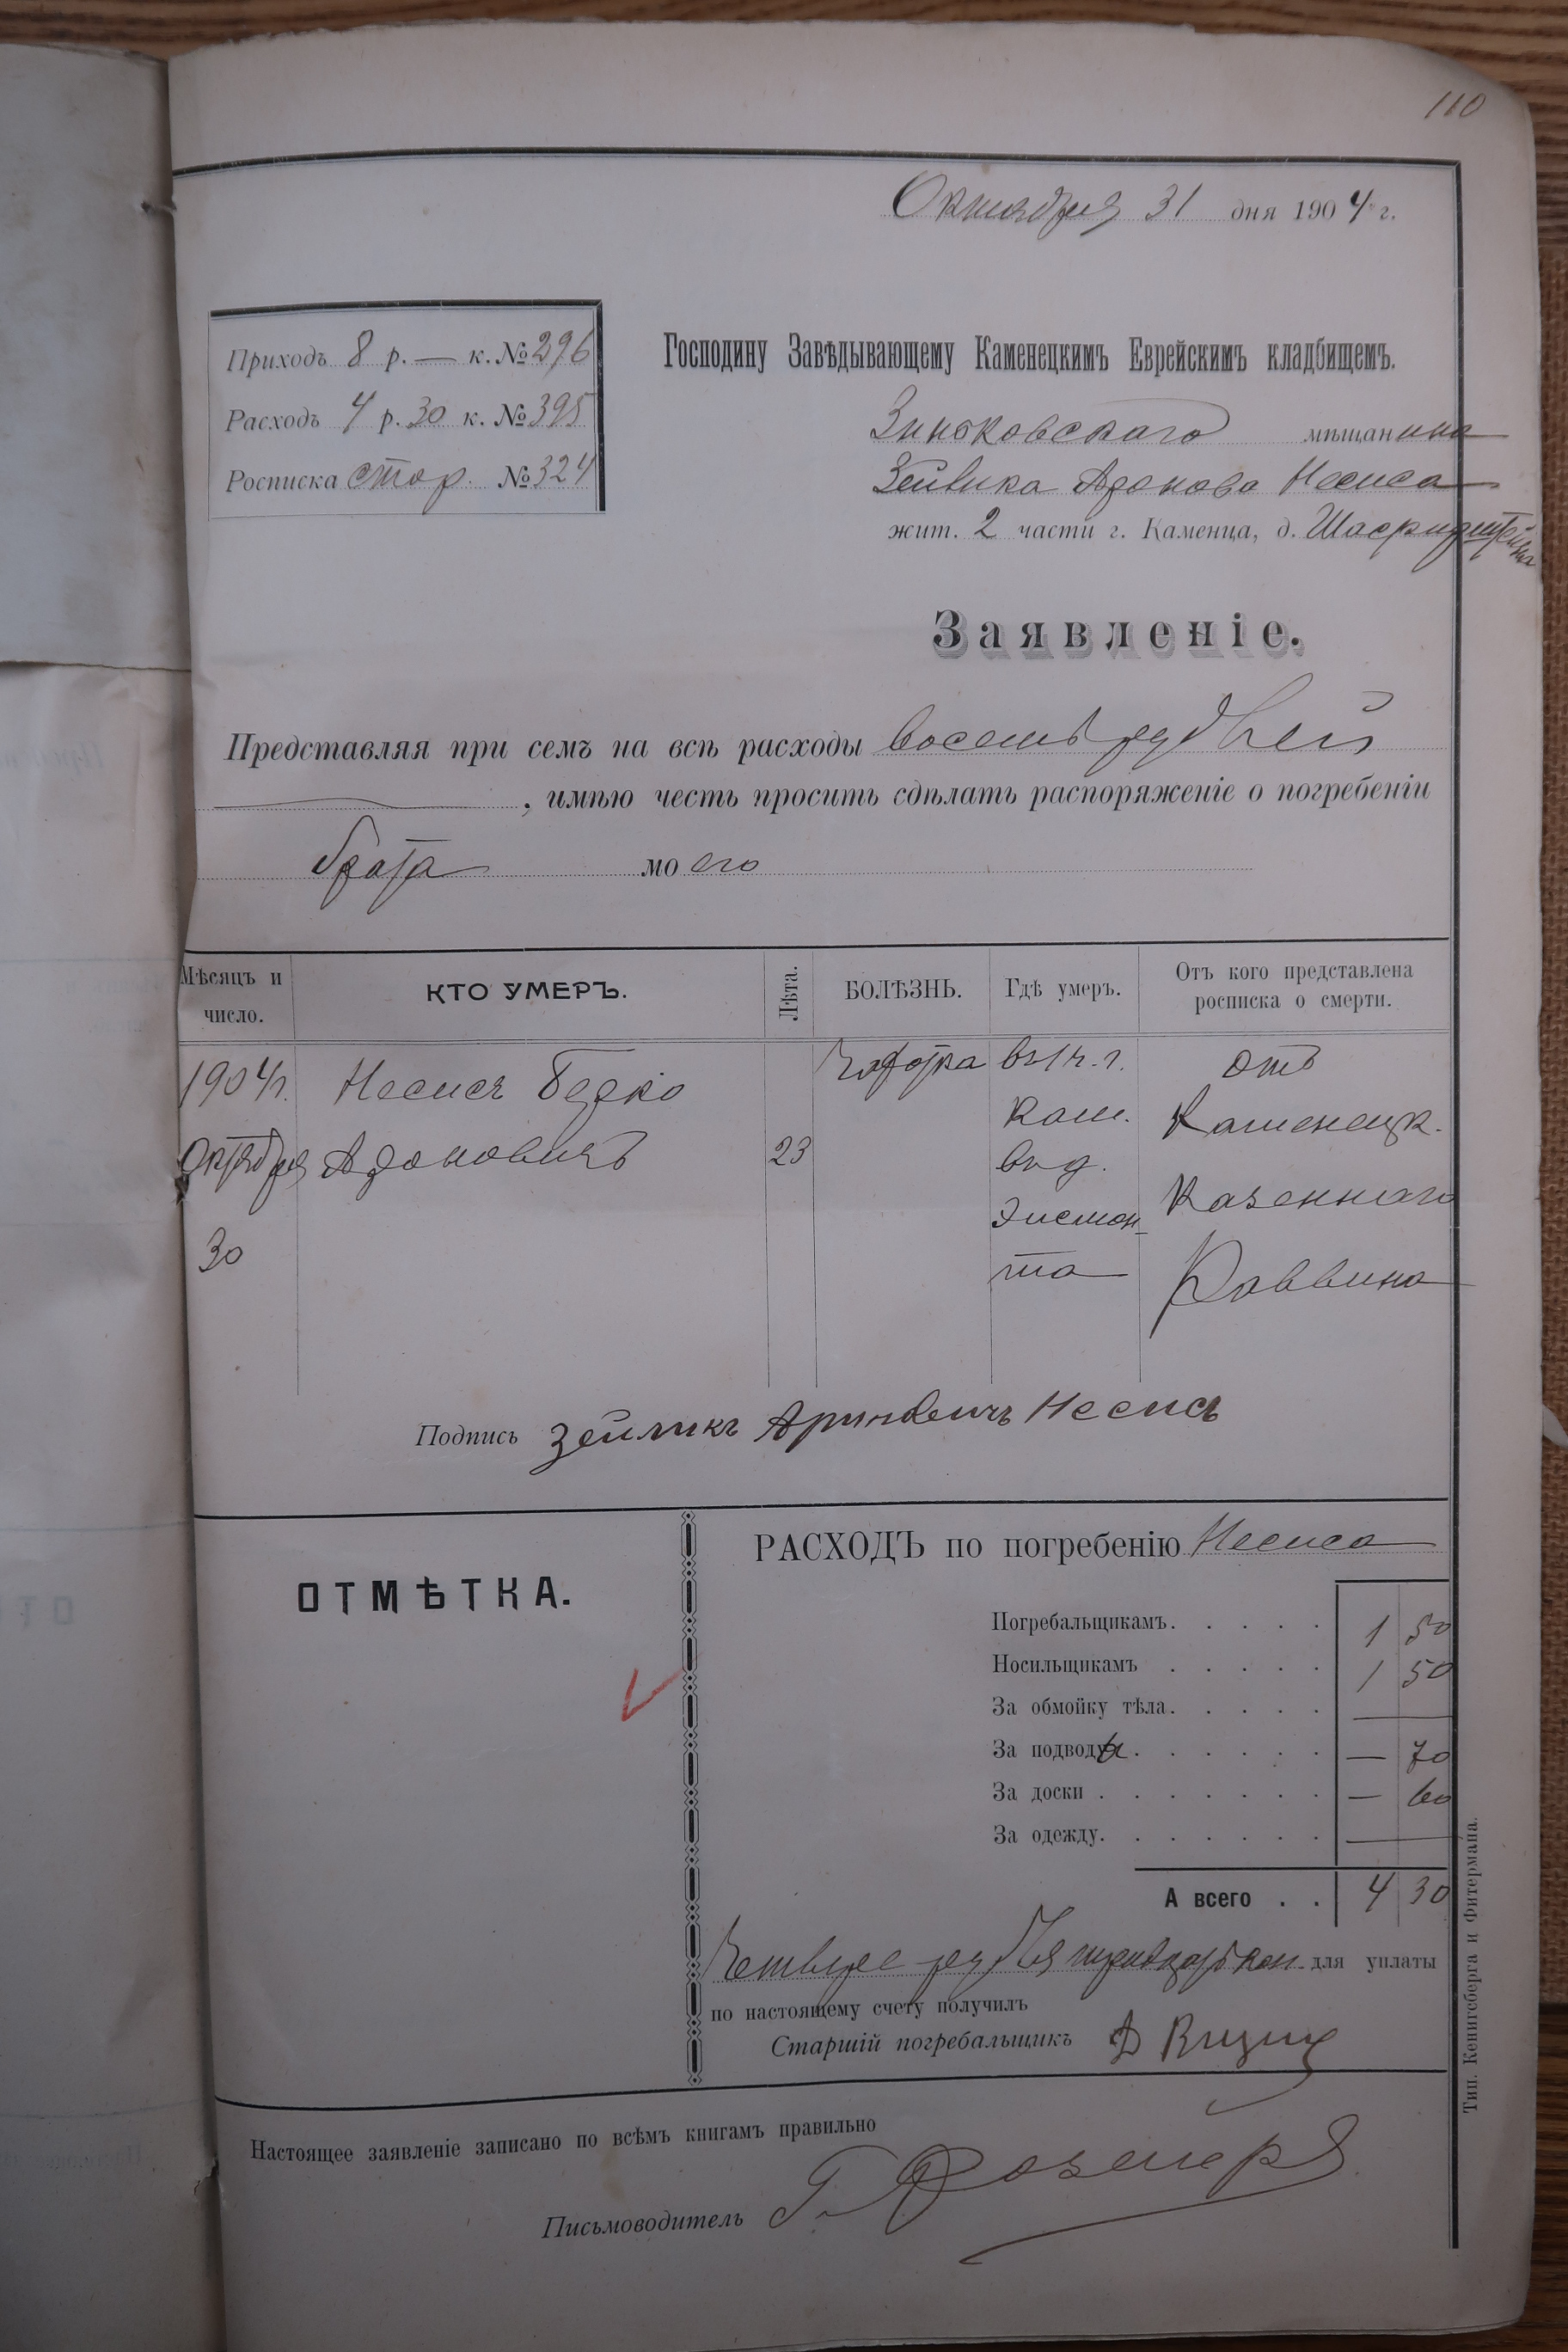 110
Октября 31 дня 1904 г.
Приходъ 8 р. — к. № 296
Расходъ 4 р. 30 к. № 395
Росписка стор. № 324
Господину Завѣдывающему Каменецкимъ Еврейскимъ кладбищемъ.
Зиньковскаго мѣщанина
Зейлика Аронова Несиса
жит. 2 части г. Каменца, д.
Заявленіе.
Представляя при семъ на всѣ расходы восемь рублей
, имѣю честь просить сдѣлать распоряженіе о погребеніи
брата моего
Мѣсяцъ и число.
КТО УМЕРЪ.
Лѣта.
БОЛѢЗНЬ.
Гдѣ умеръ.
Отъ кого представлена росписка о смерти.
1904 г. Октября 30
Несисъ Берко Ароновичъ
23
Чахотка
въ 1 ч. г. Кам. въ д.
отъ Каменецк. Казеннаго Раввина
Подпись Зейликъ Ариновичъ Несисъ
ОТМѢТКА.
РАСХОДЪ по погребенію Несиса
Погребальщикамъ. . . . . 1 50
Носильщикамъ . . . . . 1 50
За обмойку тѣла. . . . . —
За подводы . . . . . . — 70
За доски . . . . . . . — 60
За одежду. . . . . . . —
А всего . . 4 30
Четыре рубля тридцать коп. для уплаты
по настоящему счету получилъ
Старшій погребальщикъ
Настоящее заявленіе записано по всѣмъ книгамъ правильно
Письмоводитель
Тип. Кенигсберга и Фитермана.